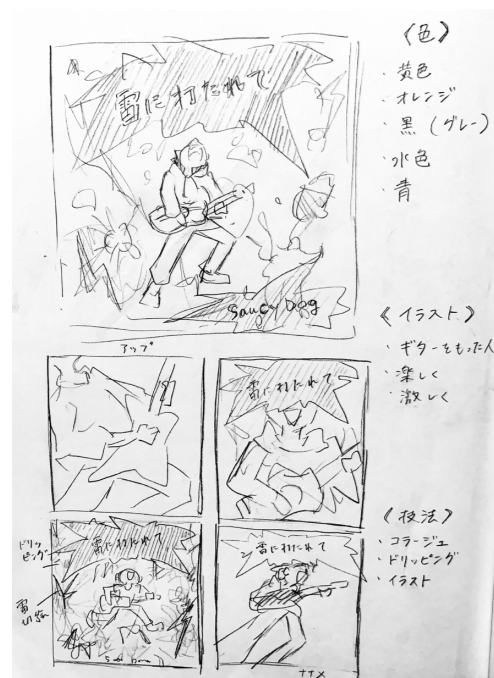 雷に打たれて
Saucy Dog
《色》
・黄色
・オレンジ
・黒(グレー)
・水色
・青
《イラスト》
・ギターをもった人
・楽しく
・激しく
アップ
雷に打たれて
ドリッ
ピング
雷に打たれて
雷に打たれて
ナナメ
《技法》
・コラージュ
・ドリッピング
・イラスト